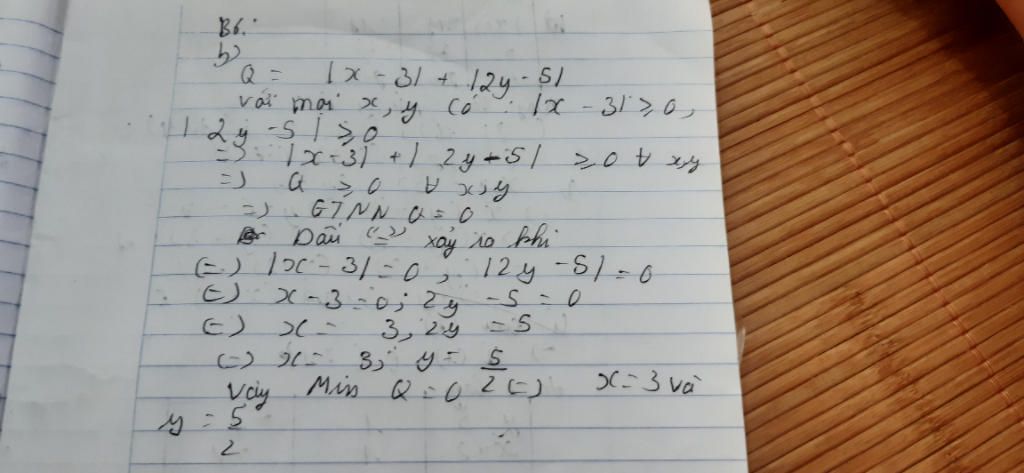 B6:
b)
Q = |x - 3| + |2y - 5|
với mọi x, y có : |x - 3| ≥ 0,
|2y - 5| ≥ 0
=> |x - 3| + |2y - 5| ≥ 0 ∀ x,y
=> Q ≥ 0 ∀ x,y
=> GTNN Q = 0
Dấu "=" xảy ra khi
(=) |x - 3| = 0 ; |2y - 5| = 0
(=) x - 3 = 0 ; 2y - 5 = 0
(=) x = 3, 2y = 5
(=) x = 3; y = 5/2
Vậy Min Q = 0 (=) x = 3 và
y = 5/2